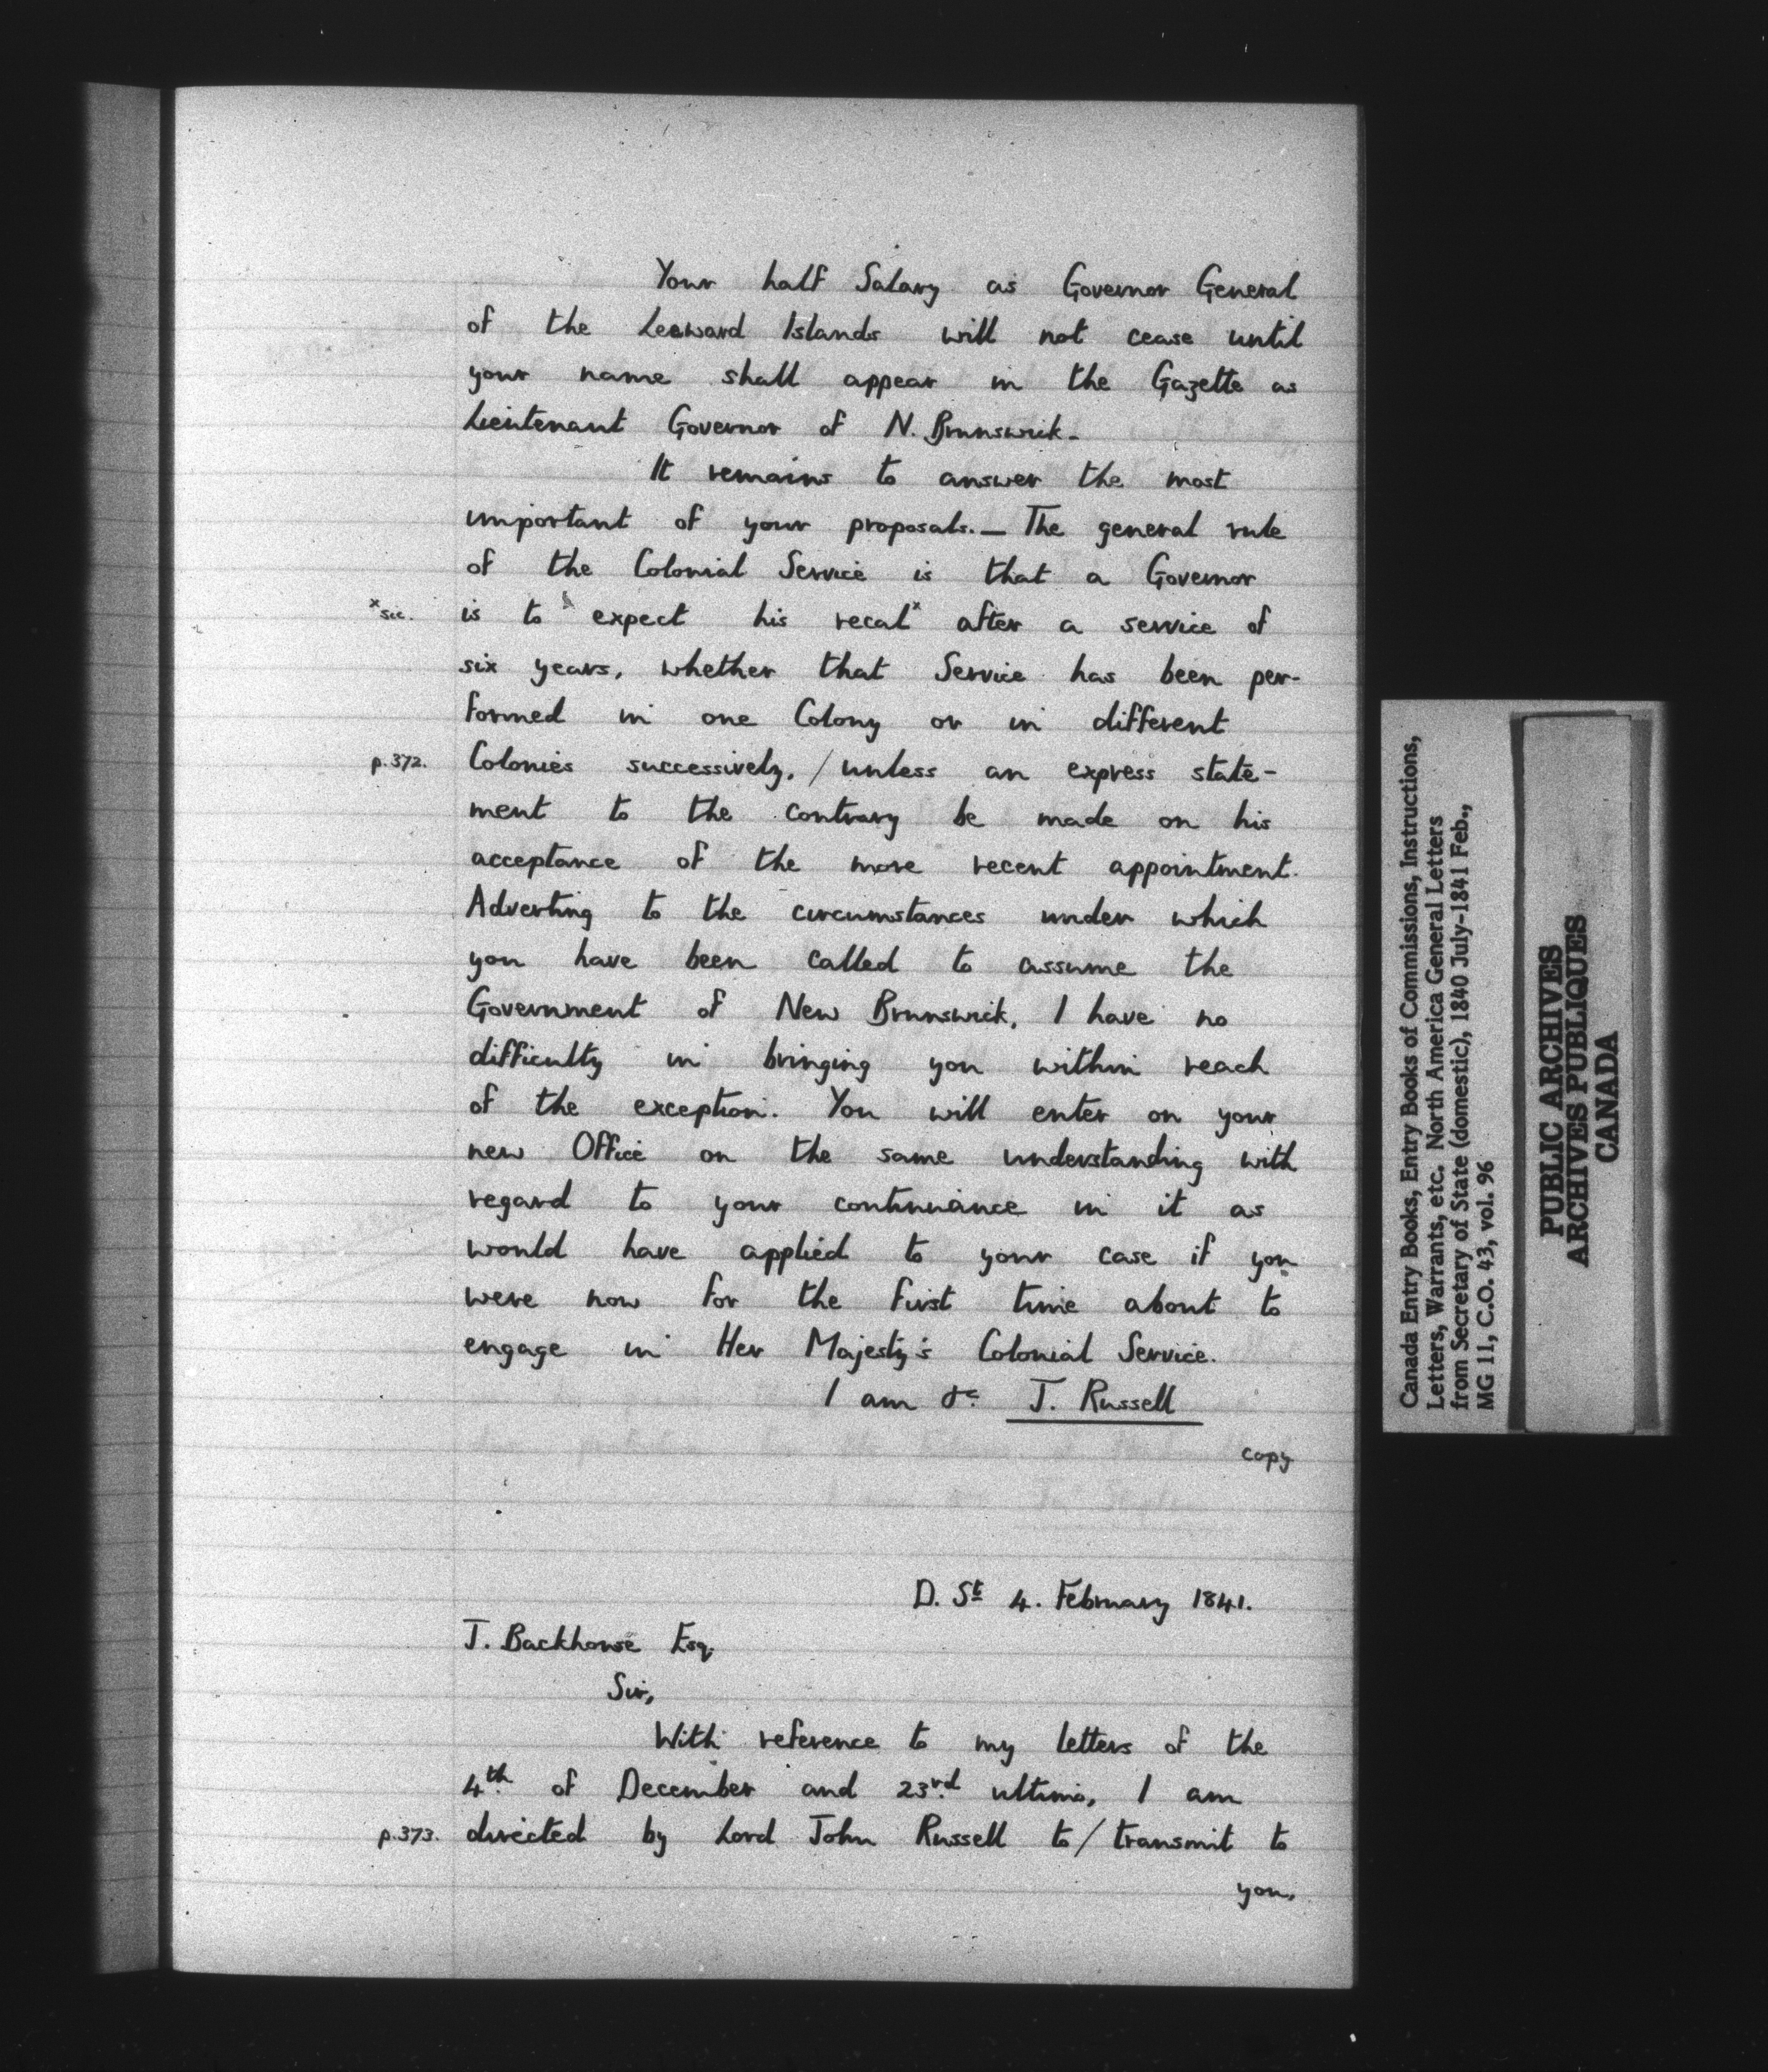 Your half Salary as Governor General
of the Leeward Islands will not cease until
your name shall appear in the Gazette as
Lieutenant Governor of N. Brunswick.
It remains to answer the most
important of your proposals. — The general rule
of the Colonial Service is that a Governor
x sic. is to expect his recal x after a service of
six years, whether that Service has been per-
formed in one Colony or in different
p.372. Colonies successively, / unless an express state-
ment to the contrary be made on his
acceptance of the more recent appointment.
Adverting to the circumstances under which
you have been called to assume the
Government of New Brunswick, I have no
difficulty in bringing you within reach
of the exception. You will enter on your
new Office on the same understanding with
regard to your continuance in it as
would have applied to your case if you
were now for the first time about to
engage in Her Majesty's Colonial Service.
I am &c. J. Russell
copy
D. St 4. February 1841.
J. Backhouse Esq.
Sir,
With reference to my letters of the
4th of December and 23rd ultimo, I am
p.373. directed by Lord John Russell to / transmit to
you,
Canada Entry Books, Entry Books of Commissions, Instructions,
Letters, Warrants, etc. North America General Letters
from Secretary of State (domestic), 1840 July-1841 Feb.,
MG 11, C.O. 43, vol. 96
PUBLIC ARCHIVES
ARCHIVES PUBLIQUES
CANADA